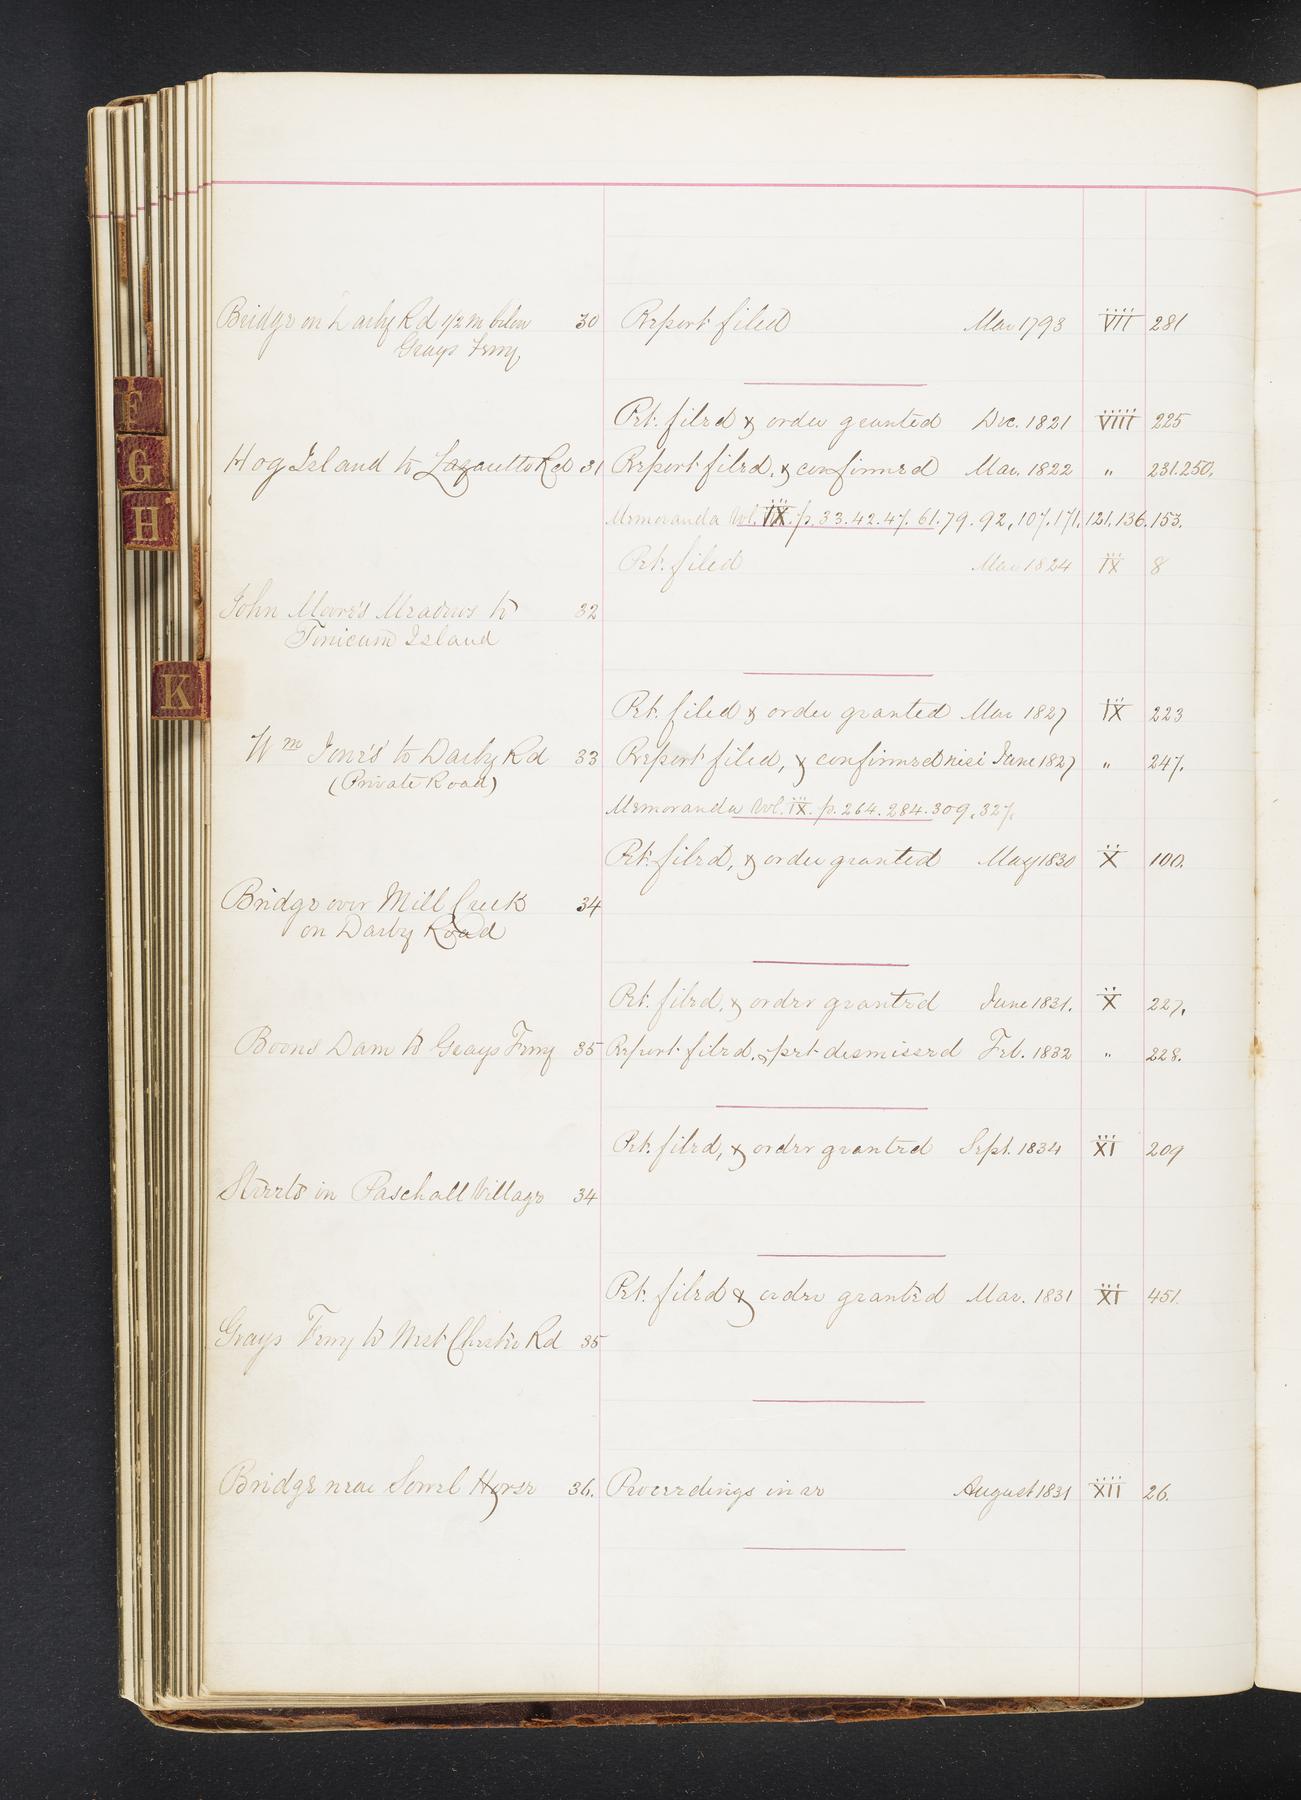 Bridge on Darby Rd 1/2 m below 30 Report filed Mar 1793 VII 281
Grays Ferry
Pet. filed & order granted Dec. 1821 VIII 225
Hog Island to Lazaretto Rd 31 Report filed, & confirmed Mar. 1822 " 231.250.
Memoranda Vol. IX. p. 33.42.47.61.79.92,107.171.121.136.153.
Pet. filed Mar 1824 IX 8
John Moore's Meadows to 32
Tinicum Island
Pet. filed & order granted Mar 1827 IX 223
Wm Jones' to Darby Rd 33 Report filed, & confirmed nisi June 1827 " 247.
(Private Road)
Memoranda Vol. IX. p. 264.284.309.327.
Pet. filed, & order granted May 1830 X 100.
Bridge over Mill Creek 34
on Darby Road
Pet. filed, & order granted June 1831. X 227.
Boons Dam to Grays Ferry 35 Report filed, & pet dismissed Feb. 1832 " 228.
Pet. filed, & order granted Sept. 1834 XI 209
Streets in Paschall Village 34
Pet. filed & order granted Mar. 1831 XI 451.
Grays Ferry to West Chester Rd 35
Bridge near Sorrel Horse 36. Proceedings in re August 1831 XII 26.
F
G
H
K